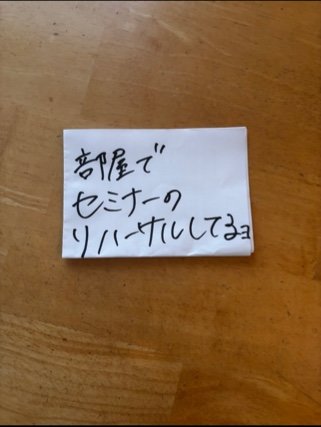 部屋で
セミナーの
リハーサルしてるヨ